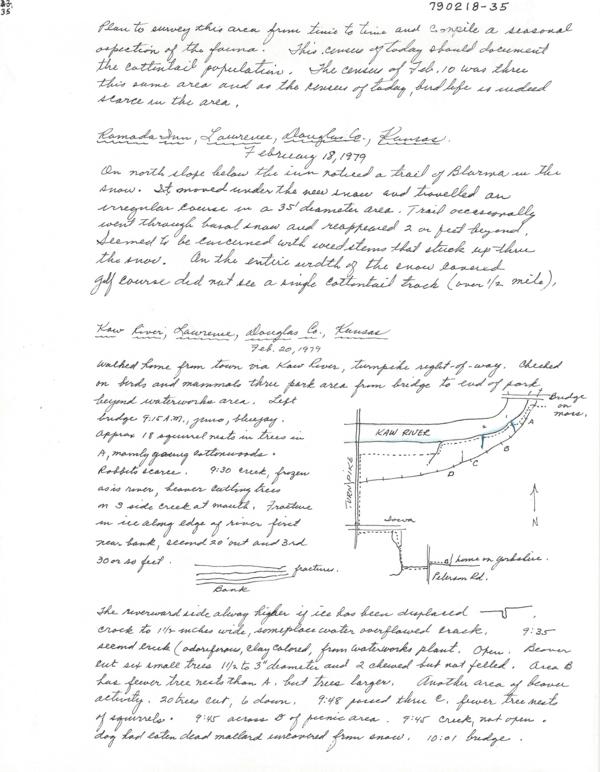 35
790218-35
Plan to survey this area from time to time and compile a seasonal
aspection of the fauna. This census of today should document
the cottontail population. The census of Feb. 10 was thru
this same area and as the census of today, bird life is indeed
scarce in the area.
Ramada Inn, Lawrence, Douglas Co., Kansas.
February 18, 1979
On north slope below the inn noticed a trail of Blarina in the
snow. It moved under the new snow and travelled an
irregular course in a 35' diameter area. Trail occasionally
went through basal snow and reappeared 2 or feet beyond.
Seemed to be concerned with weed stems that stuck up thru
the snow. On the entire width of the snow covered
golf course did not see a single cottontail track (over 1/2 mile).
Kaw River, Lawrence, Douglas Co., Kansas
Feb. 20, 1979
Walked home from town via Kaw River, turnpike right-of-way. Checked
on birds and mammals thru park area from bridge to end of park
beyond waterworks area. Left
bridge 9:15 A.M., junco, bluejay.
Approx 18 squirrel nests in trees in
A, mainly young cottonwoods.
Rabbits scarce. 9:30 creek, frozen
as is river, beaver cutting trees
on 3 side creek at mouth. Fracture
in ice along edge of river first
near bank, second 20' out and 3rd
30 or so feet.
Bridge
on
Mass.
KAW RIVER
A
B
C
D
TURNPIKE
N
Iowa
home on Yorkshire.
Peterson Rd.
fractures
Bank
The riverward side alway higher if ice has been displaced
crack to 1 1/2 inches wide, someplace water overflowed crack. 9:35
second creek (odoriferous, clay colored, from waterworks plant. Open. Beaver
cut six small trees 1 1/2 to 3" diameter and 2 chewed but not felled. Area B
has fewer tree nests than A. but trees larger. Another area of beaver
activity. 20 trees cut, 6 down. 9:48 passed thru C. fewer tree nests
of squirrels. 9:45 across D of picnic area. 9:45 creek, not open.
dog had eaten dead mallard uncovered from snow. 10:01 bridge.